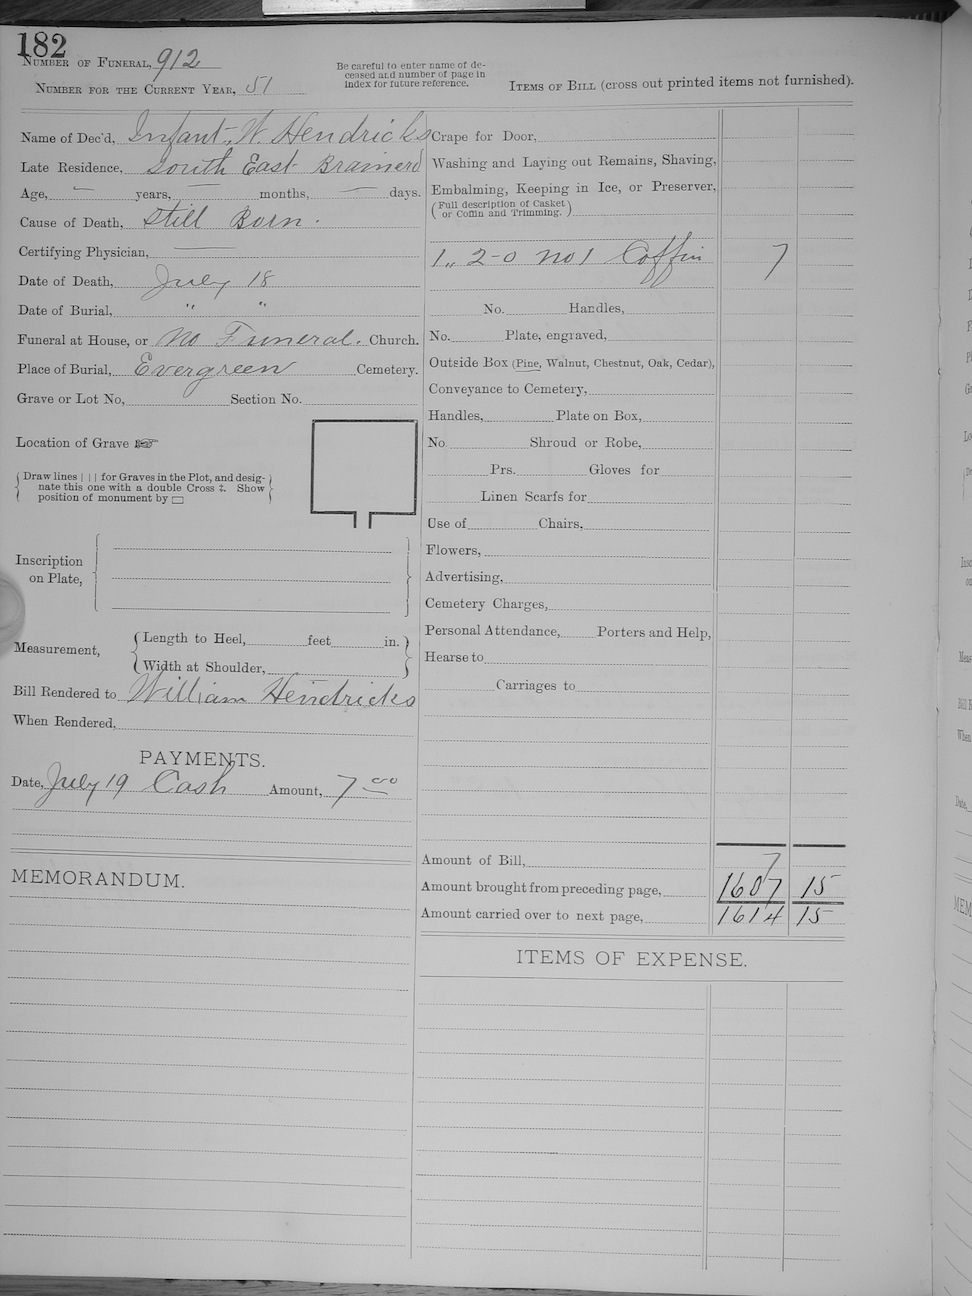 182
NUMBER OF FUNERAL, 912
NUMBER FOR THE CURRENT YEAR, 51
Be careful to enter name of de-
ceased and number of page in
index for future reference.
ITEMS OF BILL (cross out printed items not furnished).
Name of Dec'd, Infant W. Hendricks
Late Residence, South East Brainerd
Age, — years, — months, — days.
Cause of Death, Still Born.
Certifying Physician, —
Date of Death, July 18
Date of Burial, " "
Funeral at House, or No Funeral. Church.
Place of Burial, Evergreen Cemetery.
Grave or Lot No, Section No.
Location of Grave ☞
Draw lines | | | for Graves in the Plot, and desig-
nate this one with a double Cross ‡. Show
position of monument by ▭
Inscription
on Plate,
Measurement,
Length to Heel, feet in.
Width at Shoulder,
Bill Rendered to William Hendricks
When Rendered,
PAYMENTS.
Date, July 19 Cash Amount, 7 00
MEMORANDUM.
Crape for Door,
Washing and Laying out Remains, Shaving,
Embalming, Keeping in Ice, or Preserver,
(Full description of Casket
or Coffin and Trimming.)
1,, 2-0 no 1 Coffin 7
No. Handles,
No. Plate, engraved,
Outside Box (Pine, Walnut, Chestnut, Oak, Cedar),
Conveyance to Cemetery,
Handles, Plate on Box,
No Shroud or Robe,
Prs. Gloves for
Linen Scarfs for
Use of Chairs,
Flowers,
Advertising,
Cemetery Charges,
Personal Attendance, Porters and Help,
Hearse to
Carriages to
Amount of Bill, 7
Amount brought from preceding page, 1607 15
Amount carried over to next page, 1614 15
ITEMS OF EXPENSE.